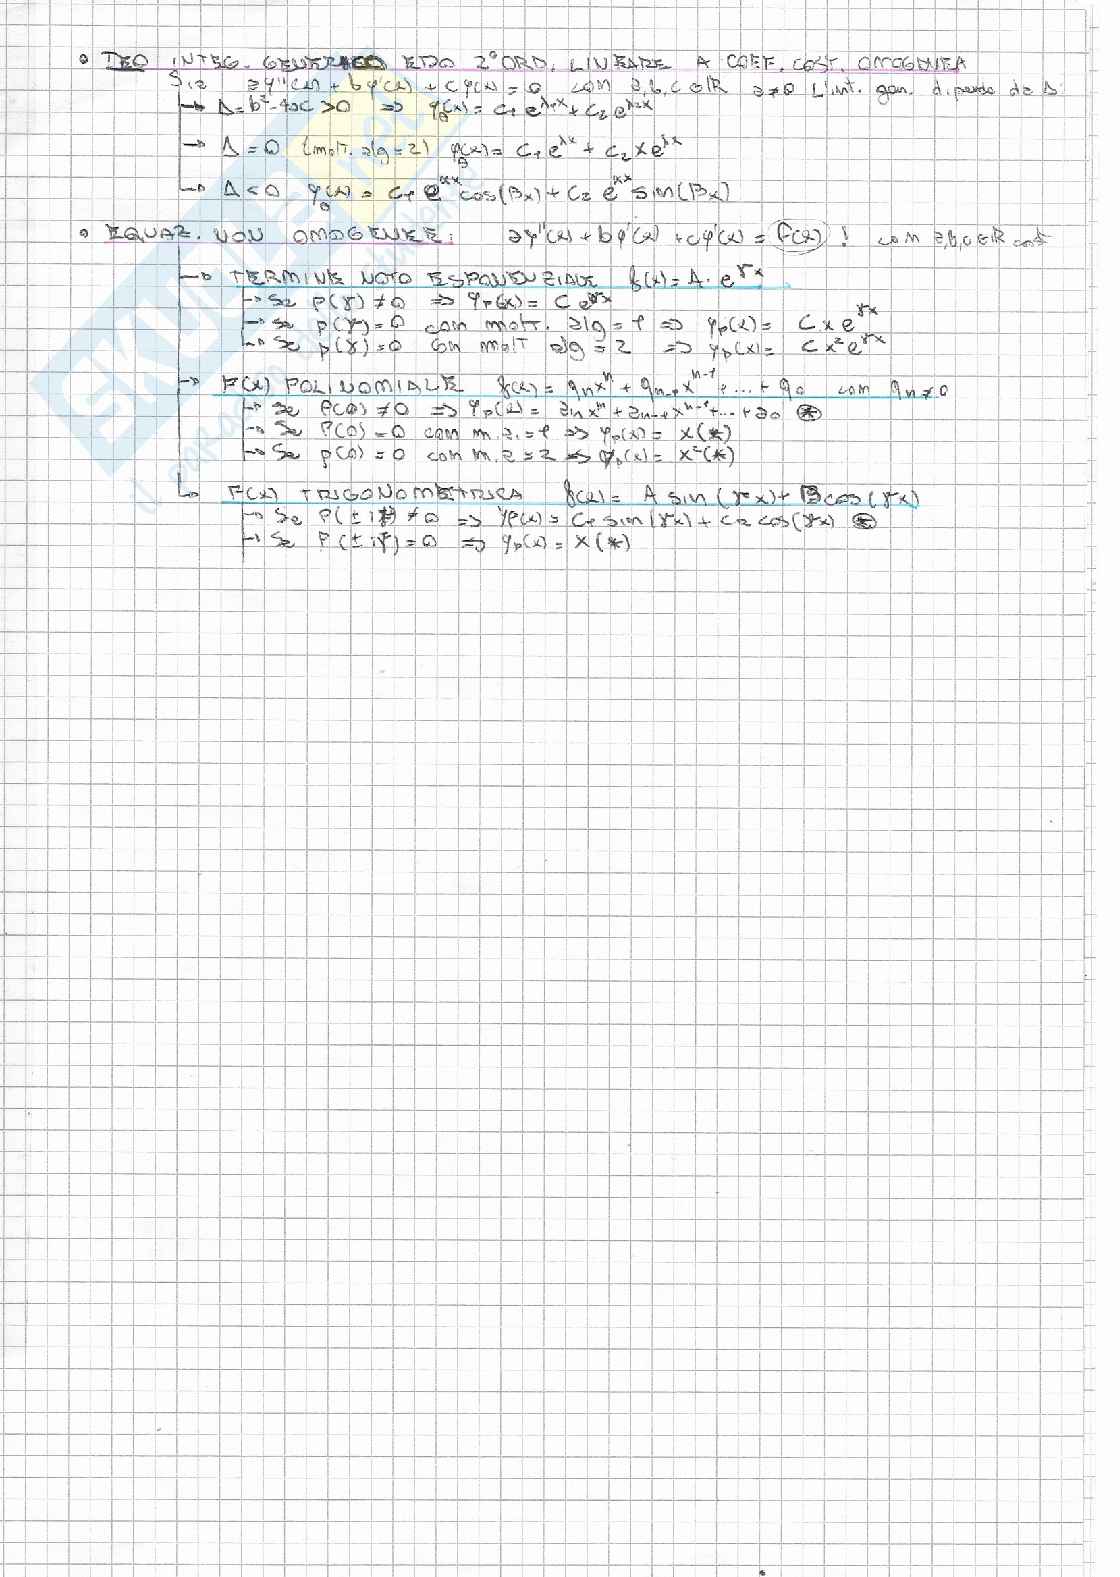 • TEO INTEG. GENERALE EDO 2° ORD. LINEARE A COEF. COST. OMOGENEA
Sia ay''(x) + by'(x) + cy(x) = 0 con a,b,c ∈ ℝ a≠0 L'int. gen. dipende da Δ:
→ Δ = b²-4ac > 0 ⇒ y₀(x) = c₁e^{λ₁x} + c₂e^{λ₂x}
→ Δ = 0 (molt. alg = 2) y₀(x) = c₁e^{λx} + c₂xe^{λx}
→ Δ < 0 y₀(x) = c₁e^{αx}cos(βx) + c₂e^{αx}sin(βx)
• EQUAZ. NON OMOGENEE: ay''(x) + by'(x) + cy'(x) = F(x) ! con a,b,c ∈ ℝ cost
→ TERMINE NOTO ESPONENZIALE f(x) = A · e^{γx}
→ Se P(γ) ≠ 0 ⇒ yₚ(x) = Ce^{γx}
→ Se p(γ) = 0 con molt. alg = 1 ⇒ yₚ(x) = Cxe^{γx}
→ Se p(γ) = 0 con molt alg = 2 ⇒ yₚ(x) = Cx²e^{γx}
→ F(x) POLINOMIALE f(x) = qₙxⁿ + qₙ₋₁xⁿ⁻¹ + ... + q₀ con qₙ ≠ 0
→ Se P(0) ≠ 0 ⇒ yₚ(x) = aₙxⁿ + aₙ₋₁xⁿ⁻¹ + ... + a₀ ⊛
→ Se P(0) = 0 con m.a. = 1 ⇒ yₚ(x) = x(*)
→ Se p(0) = 0 con m.a = 2 ⇒ yₚ(x) = x²(*)
→ F(x) TRIGONOMETRICA f(x) = A sin(γx) + B cos(γx)
→ Se P(±iγ) ≠ 0 ⇒ yp(x) = C₁ sin(γx) + C₂ cos(γx) ⊛
→ Se P(±iγ) = 0 ⇒ yₚ(x) = x(*)
SKUOLA.net